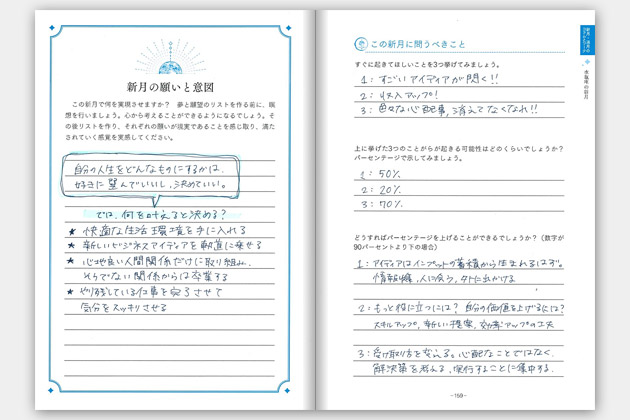 新月の願いと意図
この新月で何を実現させますか？ 夢と願望のリストを作る前に、瞑
想を行いましょう。心から考えることができるようになるでしょう。そ
の後リストを作り、それぞれの願いが現実であることを感じ取り、満た
されていく感覚を実感してください。
自分の人生をどんなものにするかは、
好きに選んでいいし、決めていい。
では、何を叶えると決める？
★ 快適な生活環境を手に入れる
★ 新しいビジネスアイディアを軌道に乗せる
★ 心地良い人間関係だけに取り組み、
そうでない関係からは卒業する
★ やり残している仕事を完了させて
気分をスッキリさせる
この新月に問うべきこと
すぐに起きてほしいことを3つ挙げてみましょう。
1：すごいアイディアが閃く!!
2：収入アップ!
3：色々な心配事、消えてなくなれ!!
上に挙げた3つのことがらが起きる可能性はどのくらいでしょうか？
パーセンテージで示してみましょう。
1：50%
2：20%
3：70%
どうすればパーセンテージを上げることができるでしょうか？（数字が
90パーセントより下の場合）
1：アイディアはインプットの蓄積から生まれるはず。
情報収集、人に会う、外に出かける
2：もっと役に立つには？ 自分の価値を上げるには？
スキルアップ、新しい提案、効率アップの工夫
3：受け取り方を変える。心配なことではなく、
解決策を考える、実行することに集中する。
- 159 -
水瓶座の新月